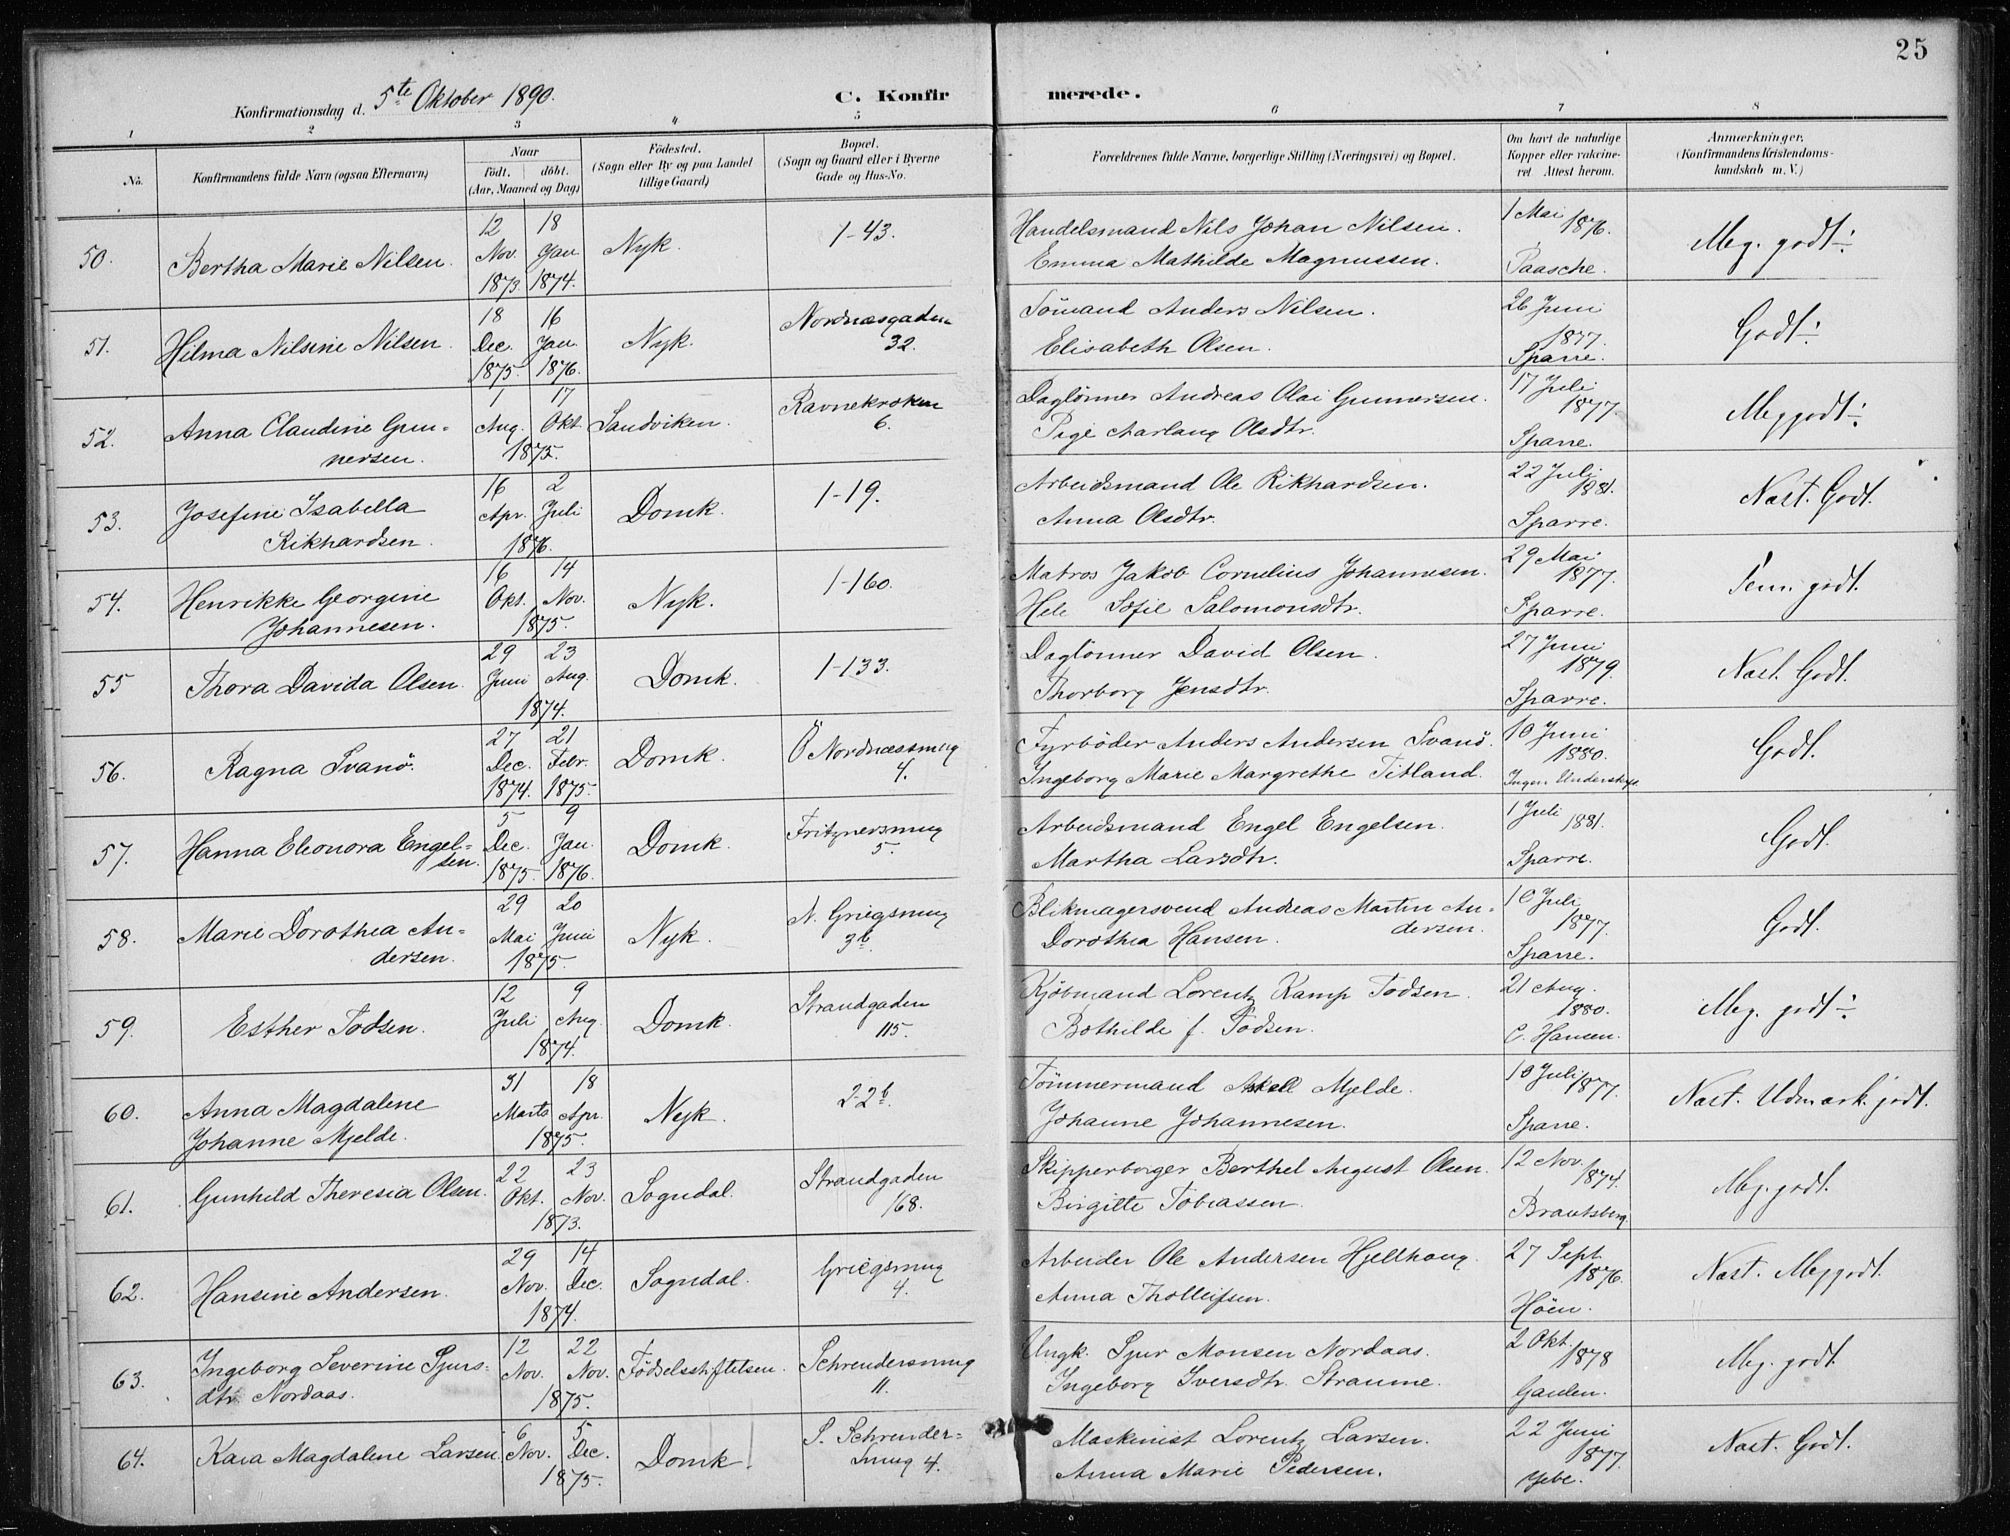 25
Konfirmationsdag d. 5te Oktober 1890.
C. Konfirmerede.
1 2 3 4 5 6 7 8
No.
Konfirmandens fulde Navn (ogsaa Efternavn)
Naar
født. døbt.
(Aar, Maaned og Dag)
Fødested.
(Sogn eller By og paa Landet
tillige Gaard)
Bopæl.
(Sogn og Gaard eller i Byerne
Gade og Hus-No.
Forældrenes fulde Navne, borgerlige Stilling (Næringsvei) og Bopæl.
Om havt de naturlige
Kopper eller vakcine-
ret Attest herom.
Anmærkninger.
(Konfirmandens Kristendoms-
kundskab m. V.)
50. Bertha Marie Nilsen. 12 Nov. 1873. 18 Jan 1874. Nyk. 1-43.
Handelsmand Nils Johan Nilsen.
Emma Mathilde Magnussen.
1 Mai 1876. Paasche. Meg. godt÷
51. Hilma Nilsine Nilsen. 18 Dec. 1875. 16 Jan. 1876. Nyk. Nordnæsgaden 32.
Sömand Anders Nilsen.
Elisabeth Olsen.
26 Juni 1877. Sparre. Godt÷
52. Anna Claudine Gun-
nersen. 1 Aug. 17 Okt 1875. Sandviken. Ravnekroken 6.
Daglönner Andreas Olai Gunnersen.
Pige Olsdtr.
17 Juli 1877. Sparre. Meg godt÷
53. Josefine Isabella
Rikhardsen. 16 Apr. 2 Juli 1876. Domk. 1-19.
Arbeidsmand Ole Rikhardsen.
Anna Olsdtr.
22 Juli 1881. Sparre. Næst. Godt.
54. Henrikke Georgine
Johannesen. 16 Okt. 14 Nov. 1875. Nyk. 1-160.
Matros Jakob Cornelius Johannesen.
Hele Sofie Salomonsdtr.
29 Mai 1877. Sparre. Tem. godt.
55 Thora Davida Olsen. 29 Juni 23 Aug. 1874. Domk. 1-133.
Daglönner David Olsen.
Thorborg Jensdtr.
27 Juni 1879. Sparre. Næst. Godt.
56. Ragna Svanö. 27 Dec. 1874. 21 Febr. 1875. Domk. Ö Nordnæssmug 4.
Fyrböder Anders Andersen Svanö.
Ingeborg Marie Margrethe Titland.
10 Juni 1880. Ingen Underskr. Godt.
57. Hanna Eleonora Engel-
sen. 5 Dec. 1875. 9 Jan. 1876. Domk. Fritznersmug 5.
Arbeidsmand Engel Engelsen.
Martha Larsdtr.
1 Juli 1881. Sparre. Godt.
58. Marie Dorothea An-
dersen. 29 Mai 20 Juni 1875. Nyk. N. Griegsmug 3b.
Blikmagersvend Andreas Martin An-
dersen.
Dorothea Hansen.
10 Juli 1877. Sparre. Godt.
59. Esther Todsen. 12 Juli 9 Aug. 1874. Domk. Strandgaden 115.
Kjöbmand Lorentz Kamp Todsen.
Bothilde f. Todsen.
21 Aug. 1880. C. Hansen. Meg. godt÷
60. Anna Magdalene
Johanne Mjelde. 31 Marts 18 Apr. 1875. Nyk. 2-2b.
Tömmermand Askell Mjelde.
Johanne Johannesen.
10 Juli 1877. Sparre. Næst. Udmærk. godt.
61. Gunhild Theresia Olsen. 22 Okt. 23 Nov. 1873. Sogndal. Strandgaden 168.
Skipperborger Berthel August Olsen.
Birgitte Tobiassen.
12 Nov. 1874. Brantsberg. Meg. godt.
62. Hansine Andersen. 29 Nov. 14 Dec. 1874. Sogndal. Griegsmug 4.
Arbeider Ole Andersen Hjellhaug.
Anna Tholleifsen.
27 Sept. 1876. Höen. Næst. Meg godt.
63. Ingeborg Severine Sjurs-
dtr. Nordaas. 12 Nov. 22 Nov. 1875. Födselsstiftelsen. Schrendersmug 11.
Ungk. Sjur Monsen Nordaas.
Ingeborg Iversdtr. Straume.
2 Okt. 1878 Gaulen. Meg. godt.
64. Kaia Magdalene Larsen. 6 Nov. 5 Dec. 1875. Domk. S. Schrender-
smug 4.
Maskinist Lorentz Larsen.
Anna Marie Pedersen.
22 Juni 1877. Næst. Godt.